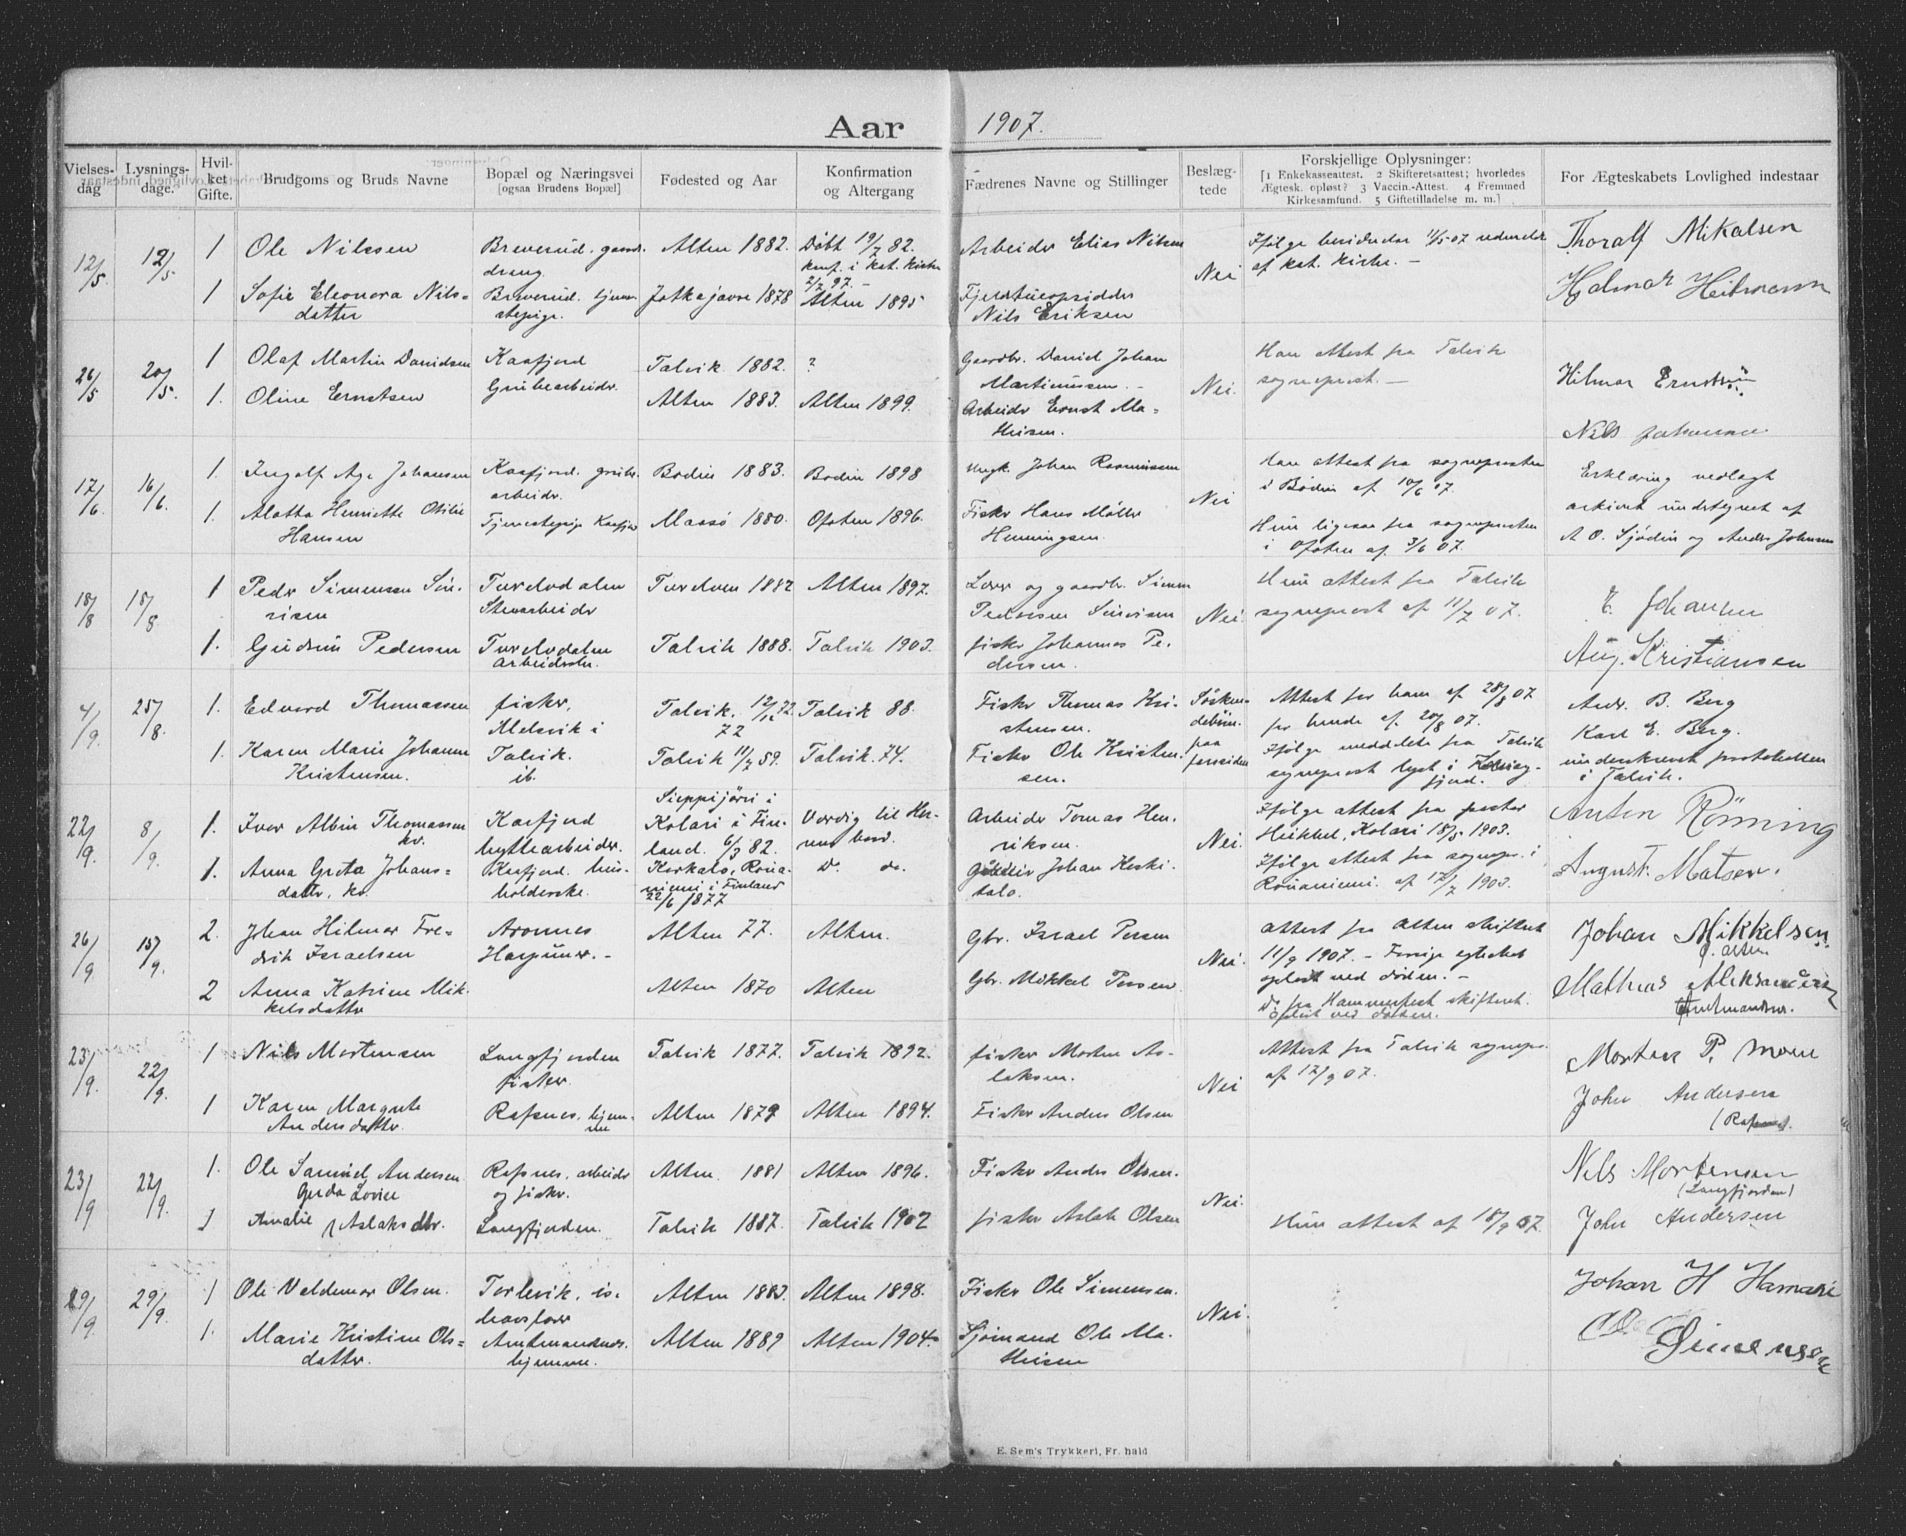 Aar 1907.
Vielses-dag
Lysnings-dage.
Hvilket Gifte.
Brudgoms og Bruds Navne
Bopæl og Næringsvei
[ogsaa Brudens Bopæl]
Fødested og Aar
Konfirmation
og Altergang
Fædrenes Navne og Stillinger
Beslæg-
tede
Forskjellige Oplysninger:
[1 Enkekasseattest. 2 Skifteretsattest; hvorledes
Ægtesk. opløst? 3 Vaccin.-Attest. 4 Fremmed
Kirkesamfund. 5 Giftetilladelse m. m.]
For Ægteskabets Lovlighed indestaar
12/5 12/5 1 Ole Nilssen
Alten 1882. Døbt 19/7 82.
konf. i kat. kirke
2/7 97.
Arbeider Elias Nilsen
Nei
af kat. kirke. –
Thoralf Mikalsen
1 Sofie Eleonora Nils=
datter
Jotkajavre 1878
Alten 1895
Nils Eriksen
Hjalmar Heitmann
26/5 20/5. 1 Olaf Martin Danidsen
Kaafjord
Grubearbeider.
Talvik 1882. ?
Gaardbr. Daniel Johan
Martinussen. –
Nei.
Han attest fra Talvik
sogneprest. –
Hilmar Erntsen
1. Oline Ernstsen
Alten 1883. Alten 1899.
Arbeider Ernst Ma=
thisen.
Nils Johansen
17/6 16/6. 1. Ingolf Age Johansen
Kaafjord. grube
arbeider.
Bodin 1883. Bodin 1898
Ungk. Johan Rasmussen
Nei
Han attest fra sognepresten
i Bodin af 10/6 07.
Erklæring vedlagt
arkivet undertegnet af
A O. Sjødin og Anders Johnsen
1. Alotta Henriette Otilie
Hansen
Tjenestepige Kaafjord
Massø 1880. Ofoten 1896.
Fisker Hans Møller
Henningsen.
Hun ligesaa fra sognepresten
i Ofoten af 3/6 07.
18/8 18/8 1 Peder Simensen Sini-
risen
Turelvdalen
Stuvarbeider
Turelven 1882 Alten 1897.
Lærer og gaardbr. Simon
Pedersen Sinrisen
Nei
Hun attest fra Talvik
sogneprest af 11/7 07.
E. Johansen
1. Gudrun Pedersen
Turelvdalen
arbeiderske.
Talvik 1888. Talvik 1903.
fisker Johannes Pe-
dersen.
Aug. Kristiansen
4/9. 25/8. 1. Edvard Thomassen
fisker,
Melsvik i
Talvik.
Talvik. 12/12 72.
72
Talvik 88.
Fisker Thomas Kri-
stensen.
Søsken-
debørn.
paa
farssiden
Attest for ham af 28/8 07
for hende af 20/8 07.
Andr. B. Berg
Karl E. Berg.
1. Karen Marie Johanne
Kristensen.
ib.
Talvik 11/7 59. Talvik. 74.
Fisker Ole Kristen-
sen.
Ifølge meddelelse fra Talvik
sogneprest lyst i
underskrevet protokollen
i Talvik.
22/9. 8/9. 1. Iver Albin Thomassen
kv.
Kaafjord
hyttearbeider.
Sieppijärvi i
Kolari i Fin-
land. 6/3 82.
Værdig til Her-
rens bord.
Arbeider Tomas Hen-
riksen.
Nei.
Ifølge attest fra pastor
Heikkel, Kolari 18/5 1903.
Anton Rönning
1. Anna Greta Johans=
datter, kv.
Kaafjord. hus-
holderske.
Korkalo, Rova-
niemi i Finland
22/6 1877
Do. do.
Johan Keski-
talo.
Ifølge attest fra sognepr. i
Rovaniemi. af 17/7 1903.
August. Matsen.
26/9 15/9. 2. Johan Hilmar Fre-
drik Israelsen
Aronnes
Harpuner. –
Alten 77. Alten.
Gbr. Israel Persen
Nei.
attest fra Alten skifteret
11/9 1907. – Forrige egteskab
oplöst ved döden. –
Johan Mikkelsen
2 Anna Katrine Mik-
kelsdatter
Alten 1870 Alten
Gbr. Mikkel Persen
Do fra Hammerfest skifteret.
opløst ved döden.
Mathias Aleksandersen
23/9. 22/9. 1 Nils Mortensen
Langfjorden
fisker.
Talvik 1877. Talvik 1892.
fisker Morten As-
laksen.
Nei
Attest fra Talvik sognepr.
af 17/9 07.
Morten P. Moen
1 Karen Margrete
Andersdatter.
Rafsnes. hjem-
me
Alten 1879 Alten 1894.
Fisker Anders Olsen
John Andersen
23/9 22/9. 1. Ole Samuel Andersen
Rafsnes, arbeider
og fisker.
Alten. 1881 Alten 1896.
Fisker Anders Olsen.
Nei.
Nils Mortensen
(Langfjorden)
Gerda Lovise
1 Amalie Aslaksdtr.
Langfjorden.
Talvik 1887. Talvik 1902
fisker Aslak Olsen
Hun attest af 18/9 07.
John Andersen
29/9. 29/9. 1 Ole Valdemar Olsen.
Torlevik, is-
havsfarer
Alten 1883. Alten 1898.
Fisker Ole Simensen.
Nei.
Johan H Hamari
1. Marie Kristine Ols=
datter.
Amtmandsnes.
hjemme.
Alten 1889 Alten 1904.
Sjömand Ole Ma-
thisen
Simensen
E. Sem's Trykkeri, Fr. hald